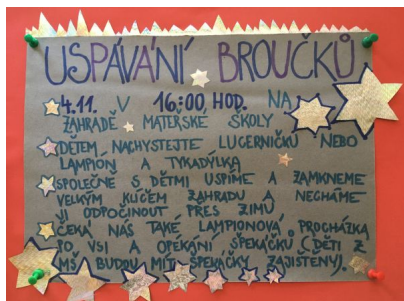 USPÁVÁNÍ BROUČKŮ
4.11. V 16:00 HOD. NA
ZAHRADĚ MATEŘSKÉ ŠKOLY
DĚTEM NACHYSTEJTE LUCERNIČKU NEBO
LAMPION A TYKADÝLKA
SPOLEČNĚ S DĚTMI USPÍME A ZAMKNEME
VELKÝM KLÍČEM ZAHRADU A NECHÁME
JI ODPOČINOUT PŘES ZIMU
ČEKÁ NÁS TAKÉ LAMPIONOVÁ PROCHÁZKA
PO VSI A OPÉKÁNÍ ŠPEKÁČKŮ (DĚTI Z
MŠ BUDOU MÍT ŠPEKÁČKY ZAJIŠTĚNY).